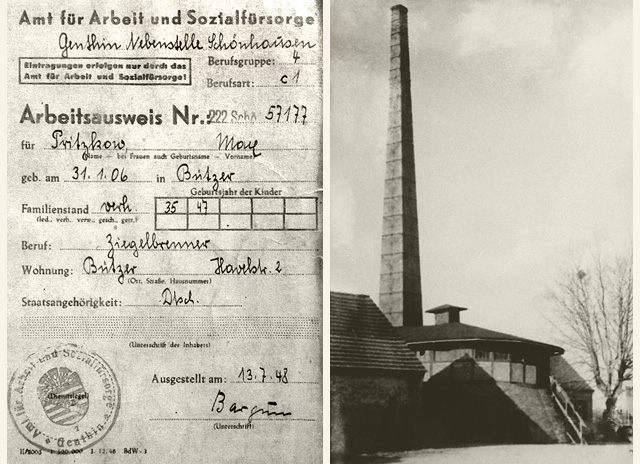 Amt für Arbeit und Sozialfürsorge
Genthin Nebenstelle Schönhausen
Eintragungen erfolgen nur durch das
Amt für Arbeit und Sozialfürsorge!
Berufsgruppe: 4
Berufsart: c 1
Arbeitsausweis Nr. 222 Schö 57177
für Pritzkow, Max
(Name — bei Frauen auch Geburtsname — Vorname)
geb. am 31.1.06 in Bützer
Geburtsjahr der Kinder
Familienstand verh. 35 47
(led., verh., verw., gesch., getr.)
Beruf: Ziegelbrenner
Wohnung: Bützer Havelstr. 2
(Ort, Straße, Hausnummer)
Staatsangehörigkeit: Dtsch.
(Unterschrift des Inhabers)
Ausgestellt am: 13.7.48
(Unterschrift)
Amt für Arbeit und Sozialfürsorge
Genthin
(Dienstsiegel)